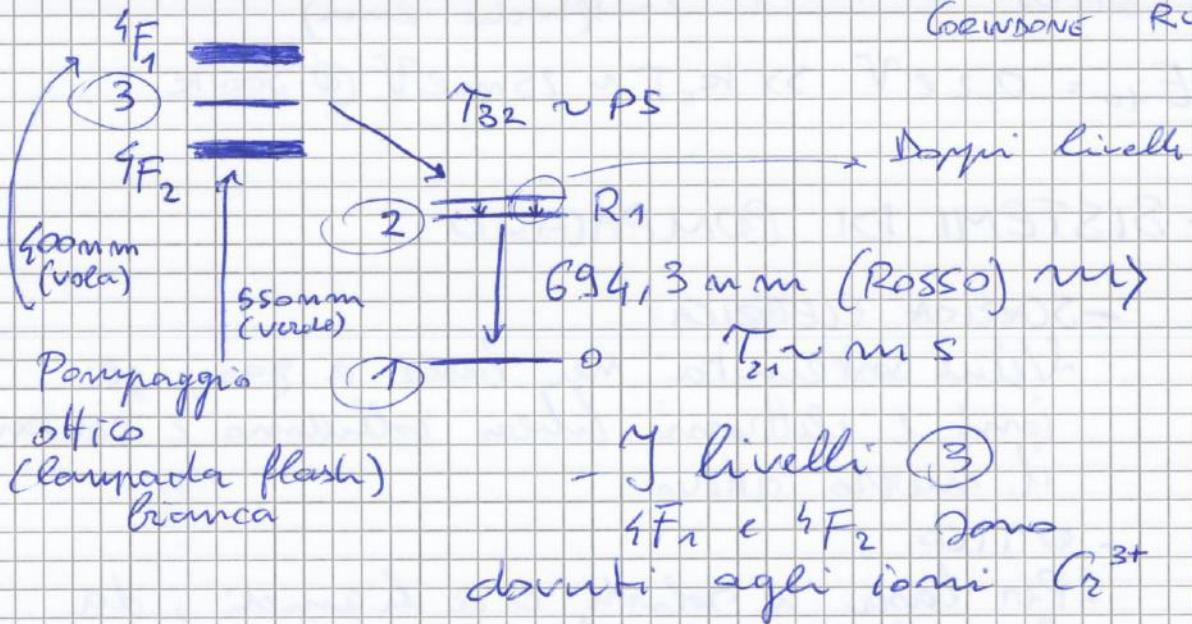 CORINDONE
⁴F₁
③
T₃₂ ~ PS
⁴F₂
Doppi livelli
② R₁
400nm
(viola)
550nm
(verde)
694,3 nm (Rosso)
T₂₁ ~ ms
① 0
Pompaggio
ottico
(lampada flash)
bianca
- I livelli ③
⁴F₁ e ⁴F₂ sono
dovuti agli ioni Cr³⁺